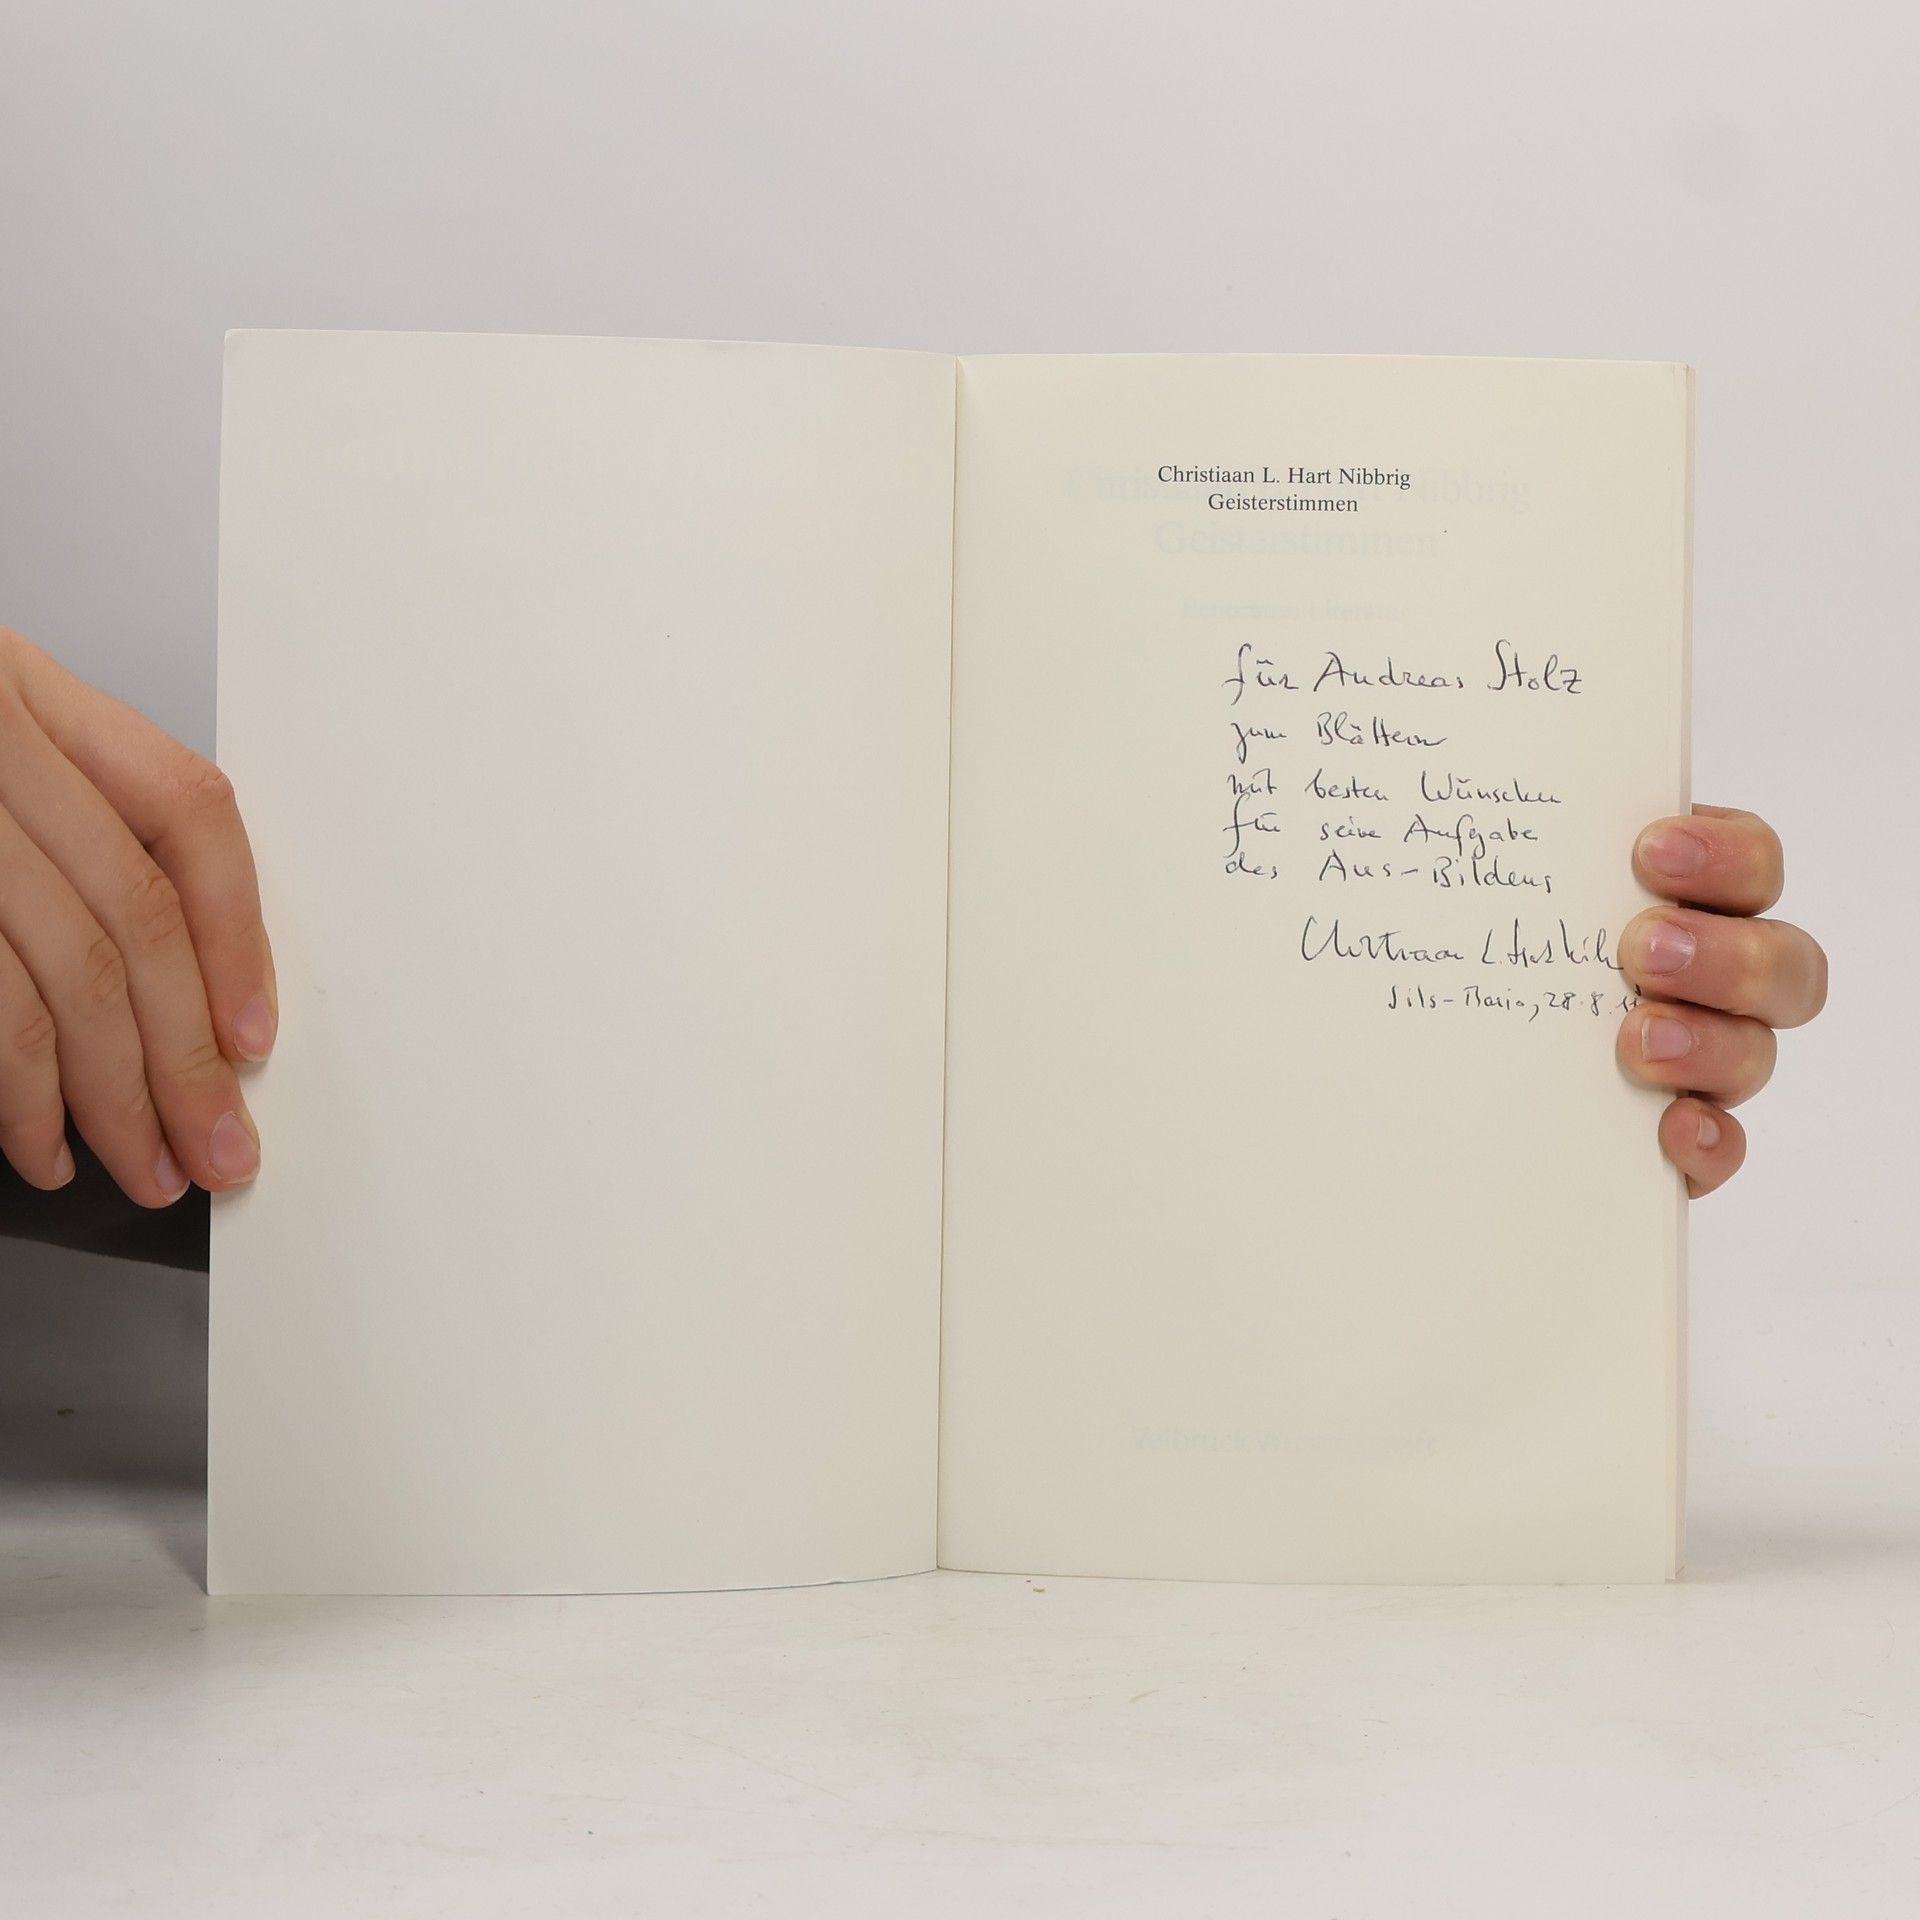 Christiaan L. Hart Nibbrig
Geisterstimmen
für Andreas Stolz
zum Blättern
mit besten Wünschen
für seine Aufgabe
des Aus-Bildens
Christiaan L. Hart
Sils-Maria, 28.8.